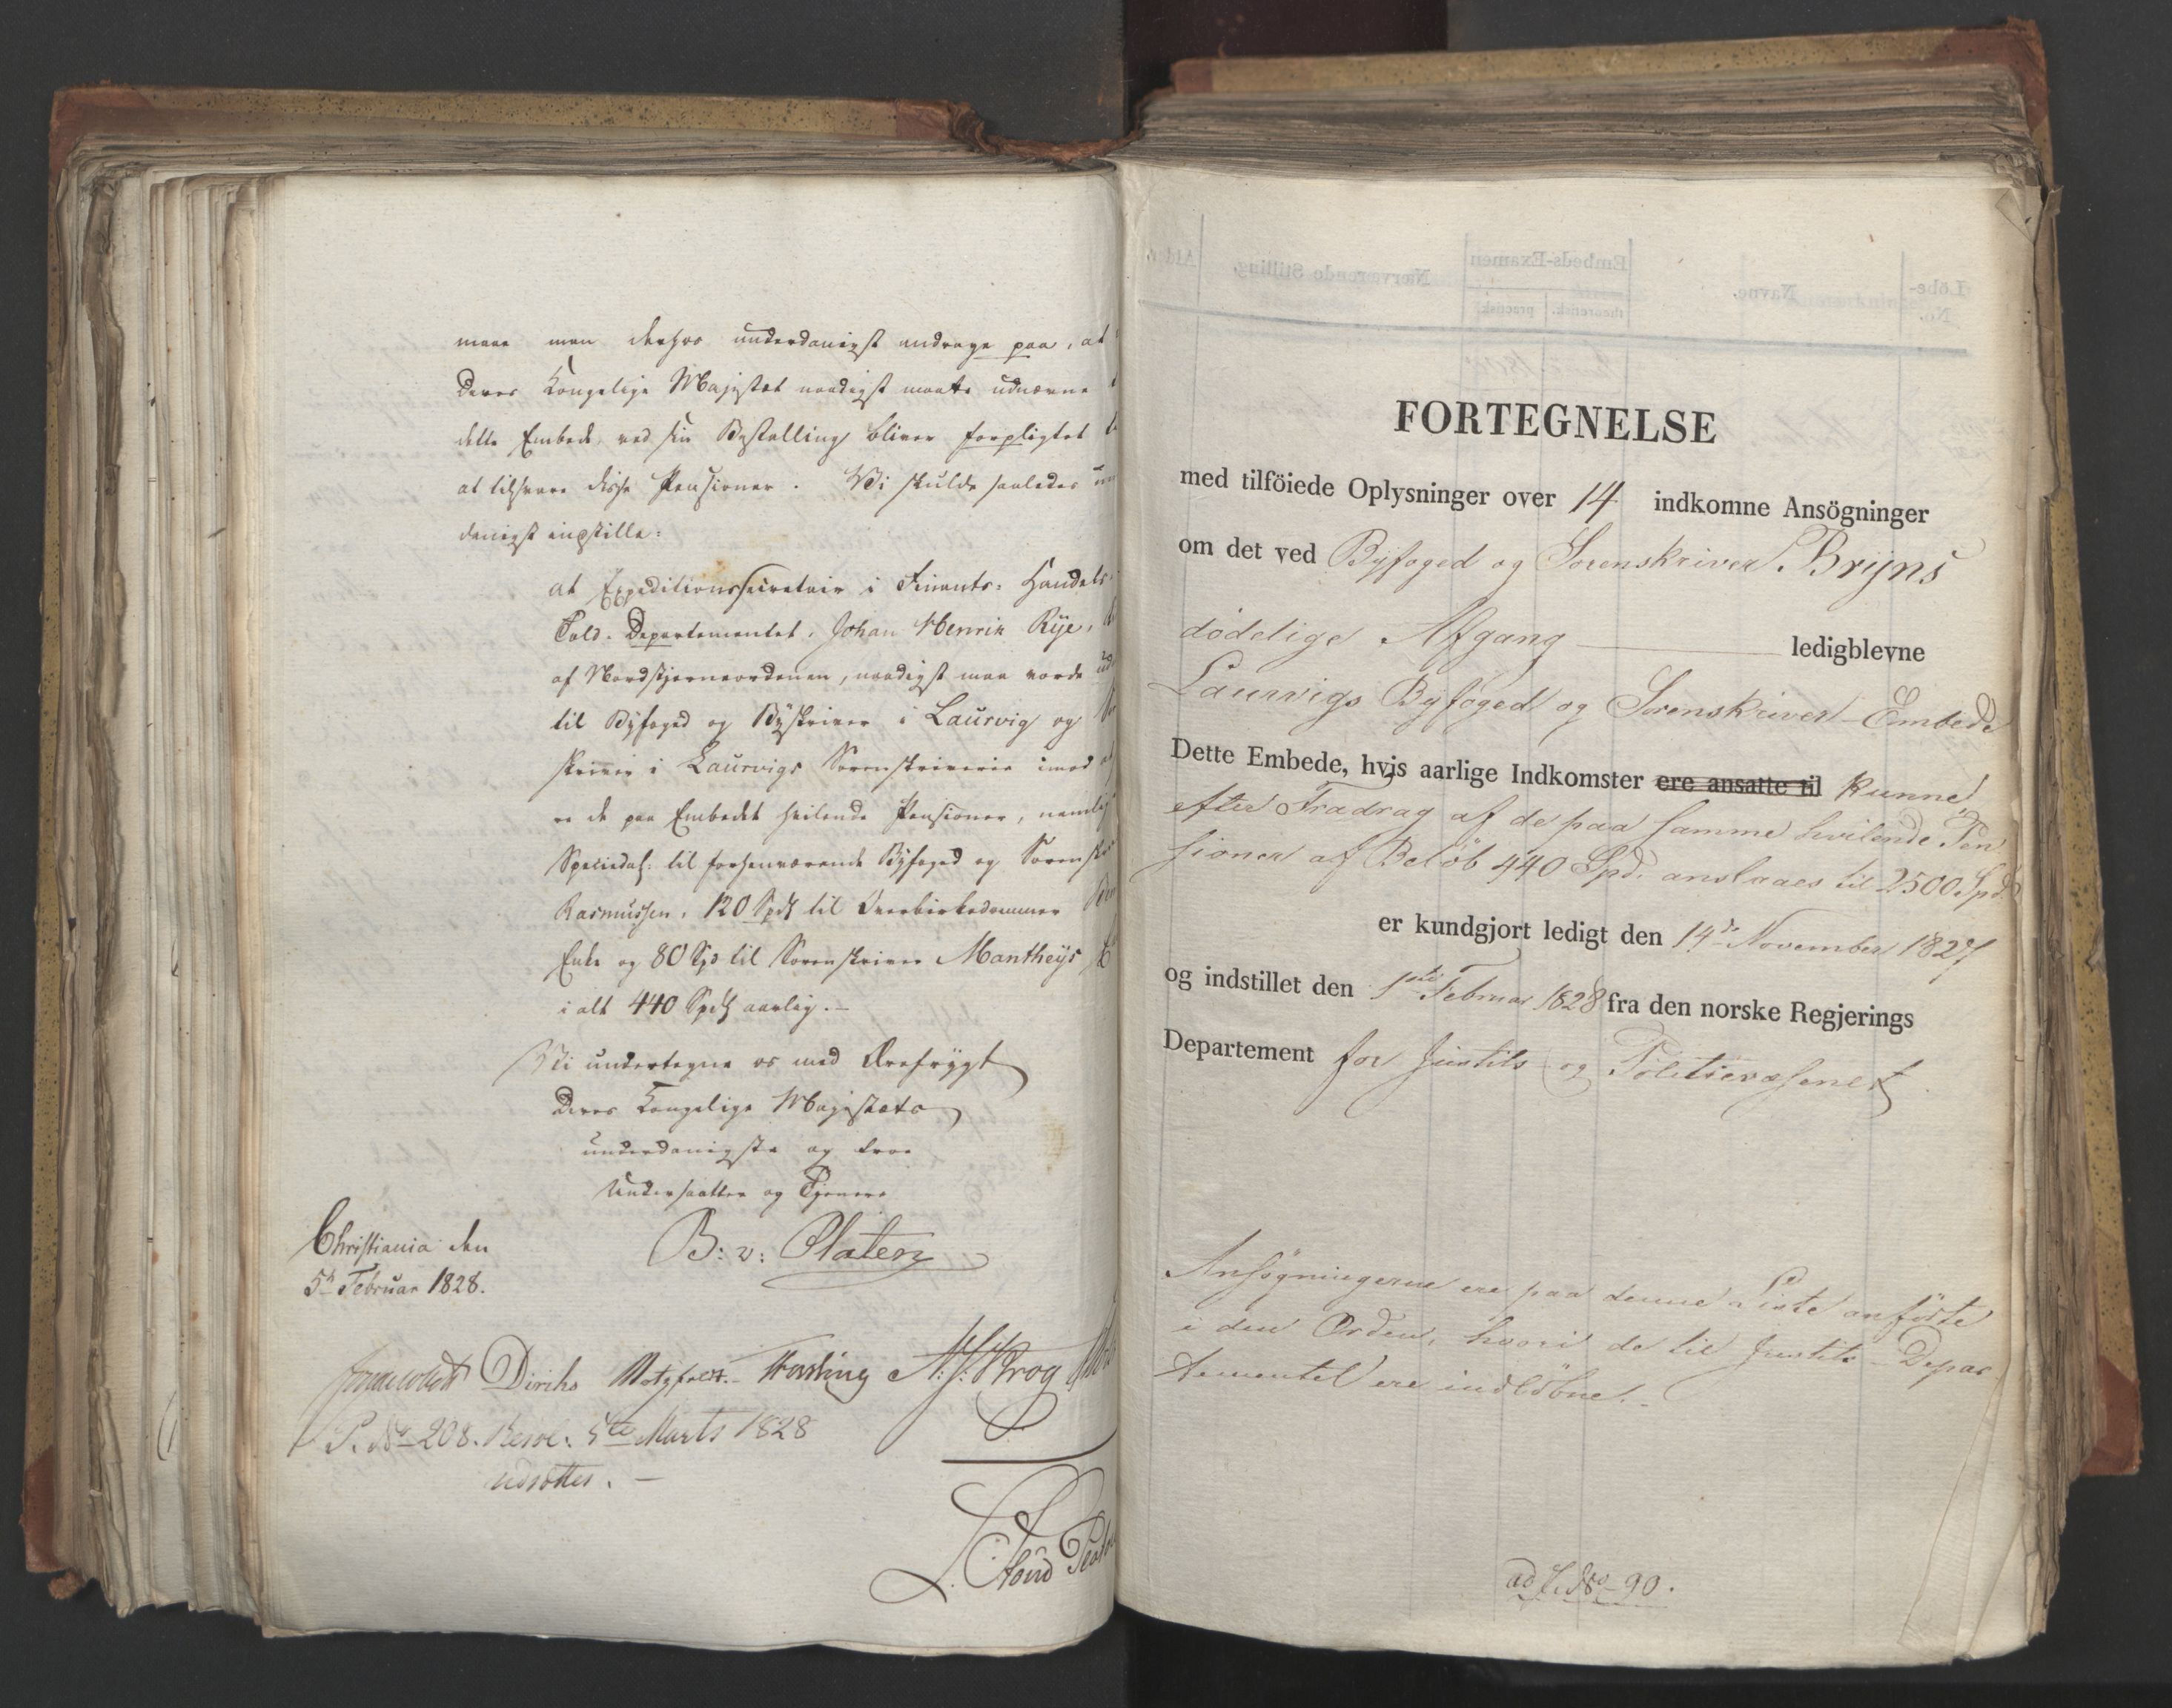 maae man derhos underdanigst andrage paa, at
Deres Kongelige Majestæt naadigst maatte udnævne
dette Embede ved sin Bestalling bliver forpligtet
at tilsvare disse Pensioner. Vi skulde saaledes un
danigst indstille:
at Expeditionssecretair i Finants- Handels-
Told-Departementet, Johan Henrik Rye,
af Nordstjerneordenen, naadigst maa vorde ud
til Byfoged og Byskriver i Laurvig og
skriver i Laurvigs Sorenskriverie imod
re de paa Embedet hvilende Pensioner, nemlig
Speciedlr. til forhenværende Byfoged og Soren
Rasmussen, 120 Spdlr til Overbirkedommer
Enke og 80 Spd til Sorenskriver Mantheys
i alt 440 Spdlr aarlig. –
Vi undertegne os med Ærefrygt
Deres Kongelige Majestæts
underdanigste og troe
Undersaatter og Tjenere
Christiania den
B: v: Platen
5te Februar 1828.
Diriks Motzfeldt. Fasting A. S. Krog
S. No 208. Resol. 5te Marts 1828
udsættes. –
FORTEGNELSE
med tilföiede Oplysninger over 14 indkomne Ansögninger
om det ved Byfoged og Sorenskriver Bryns
dødelige Afgang ledigblevne
Laurvigs Byfoged og Sorenskriver-Embede
Dette Embede, hvis aarlige Indkomster ere ansatte til kunne,
efter Fradrag af de paa samme hvilende Pen
sioner af Beløb 440 Spd. anslaaes til 2500 Spd.
er kundgjort ledigt den 14de November 1827
og indstillet den 1ste Februar 1828 fra den norske Regjerings
Departement for Justits- og Politievæsenet
Ansøgningerne ere paa denne Liste anførte
i den Orden, hvori de til Justits-Depar
tementet ere indløbne. –
ad J. No 90.